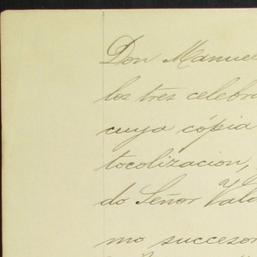 Don Manuel
los tres celebra
cuya cópia
tocolizacion,
do Señor Valo
mo succesor